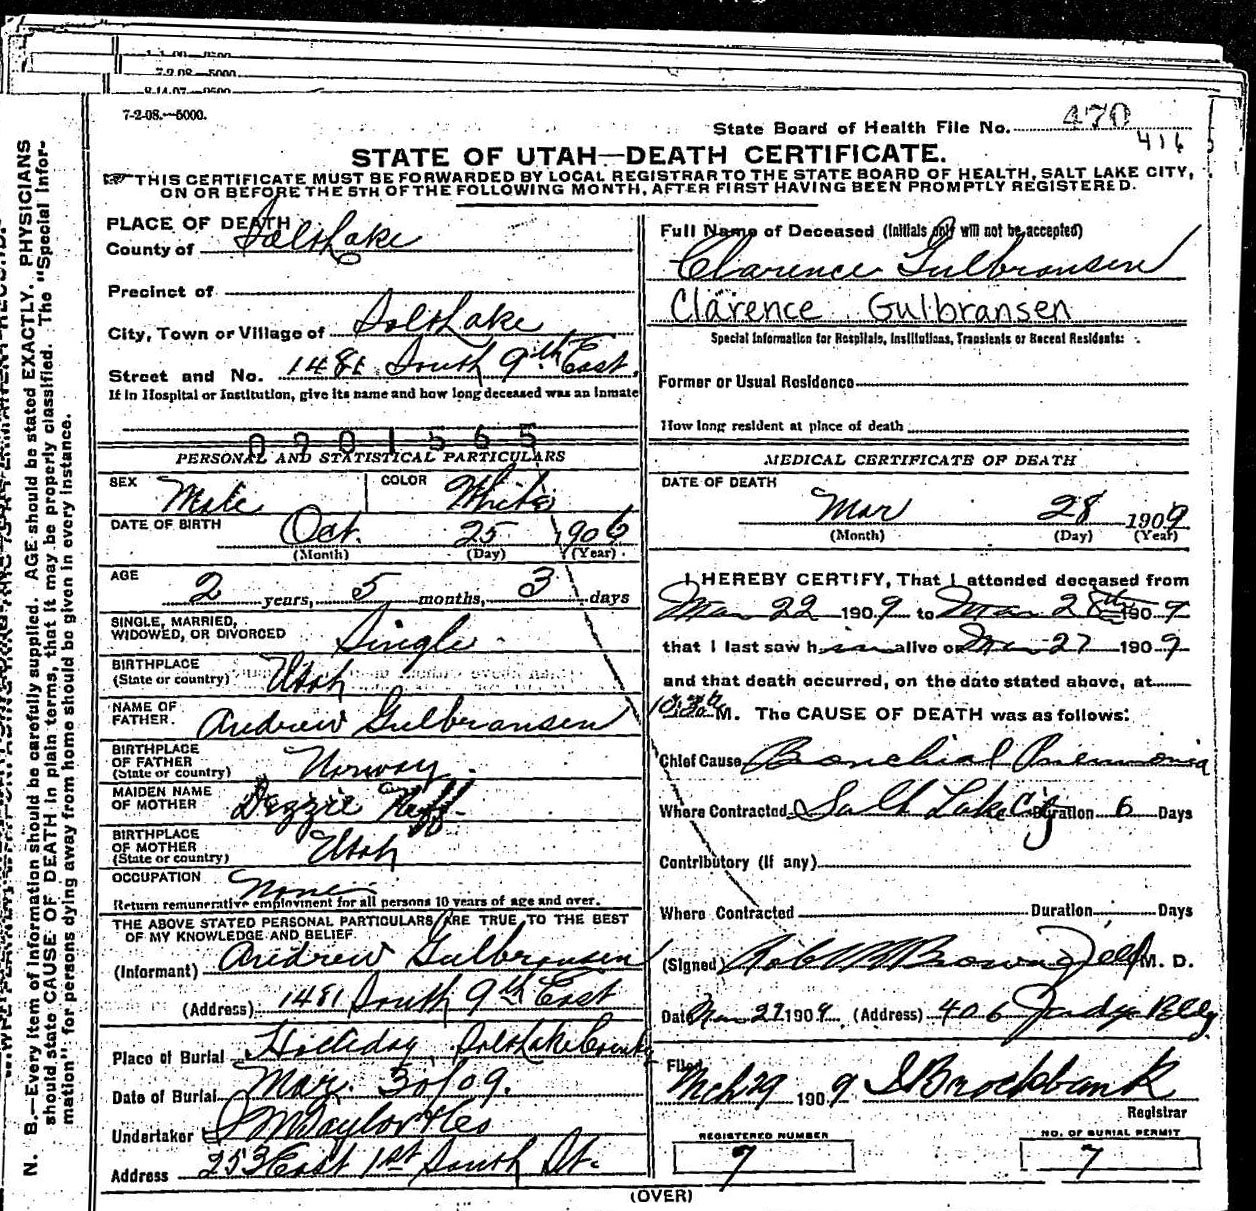 7-2-08.—5000.
7-2-08.—5000.
State Board of Health File No. 470
416
STATE OF UTAH—DEATH CERTIFICATE.
THIS CERTIFICATE MUST BE FORWARDED BY LOCAL REGISTRAR TO THE STATE BOARD OF HEALTH, SALT LAKE CITY,
ON OR BEFORE THE 5TH OF THE FOLLOWING MONTH, AFTER FIRST HAVING BEEN PROMPTLY REGISTERED.
PLACE OF DEATH
County of Salt Lake
Precinct of
City, Town or Village of Salt Lake
Street and No. 1481 South 9th East.
If in Hospital or Institution, give its name and how long deceased was an inmate
0201565
PERSONAL AND STATISTICAL PARTICULARS
SEX Male COLOR White
DATE OF BIRTH Oct. 25 1906
(Month) (Day) (Year)
AGE
2 years, 5 months, 3 days
SINGLE, MARRIED,
WIDOWED, OR DIVORCED Single
BIRTHPLACE
(State or country) Utah
NAME OF
FATHER. Andrew Gulbransen
BIRTHPLACE
OF FATHER
(State or country) Norway.
MAIDEN NAME
OF MOTHER Dezzie Neff.
BIRTHPLACE
OF MOTHER
(State or country) Utah
OCCUPATION None
Return remunerative employment for all persons 10 years of age and over.
THE ABOVE STATED PERSONAL PARTICULARS ARE TRUE TO THE BEST
OF MY KNOWLEDGE AND BELIEF
(Informant) Andrew Gulbransen
(Address) 1481 South 9th East
Place of Burial Holliday, Salt Lake County
Date of Burial Mar. 30/09.
Undertaker Taylor
Address 253 East 1st South St.
Full Name of Deceased (Initials only will not be accepted)
Clarence Gulbransen
Clarence Gulbransen
Special Information for Hospitals, Institutions, Transients or Recent Residents:
Former or Usual Residence
How long resident at place of death
MEDICAL CERTIFICATE OF DEATH
DATE OF DEATH
Mar 28 1909
(Month) (Day) (Year)
I HEREBY CERTIFY, That I attended deceased from
Mar 22 1909 to Mar 28th 1909
that I last saw him alive on Mar 27 1909
and that death occurred, on the date stated above, at
M. The CAUSE OF DEATH was as follows:
Chief Cause Bronchial Pneumonia
Where Contracted Salt Lake City Duration 6 Days
Contributory (if any)
Where Contracted Duration Days
(Signed) Brownfield M. D.
Date Mar 29 1909 (Address) 406 Judge Bldg.
Filed Mch 29 1909 Brockbank
Registrar
REGISTERED NUMBER
7
NO. OF BURIAL PERMIT
7
(OVER)
N. B.—Every item of information should be carefully supplied. AGE should be stated EXACTLY. PHYSICIANS
should state CAUSE OF DEATH in plain terms, that it may be properly classified. The "Special Infor-
mation" for persons dying away from home should be given in every instance.